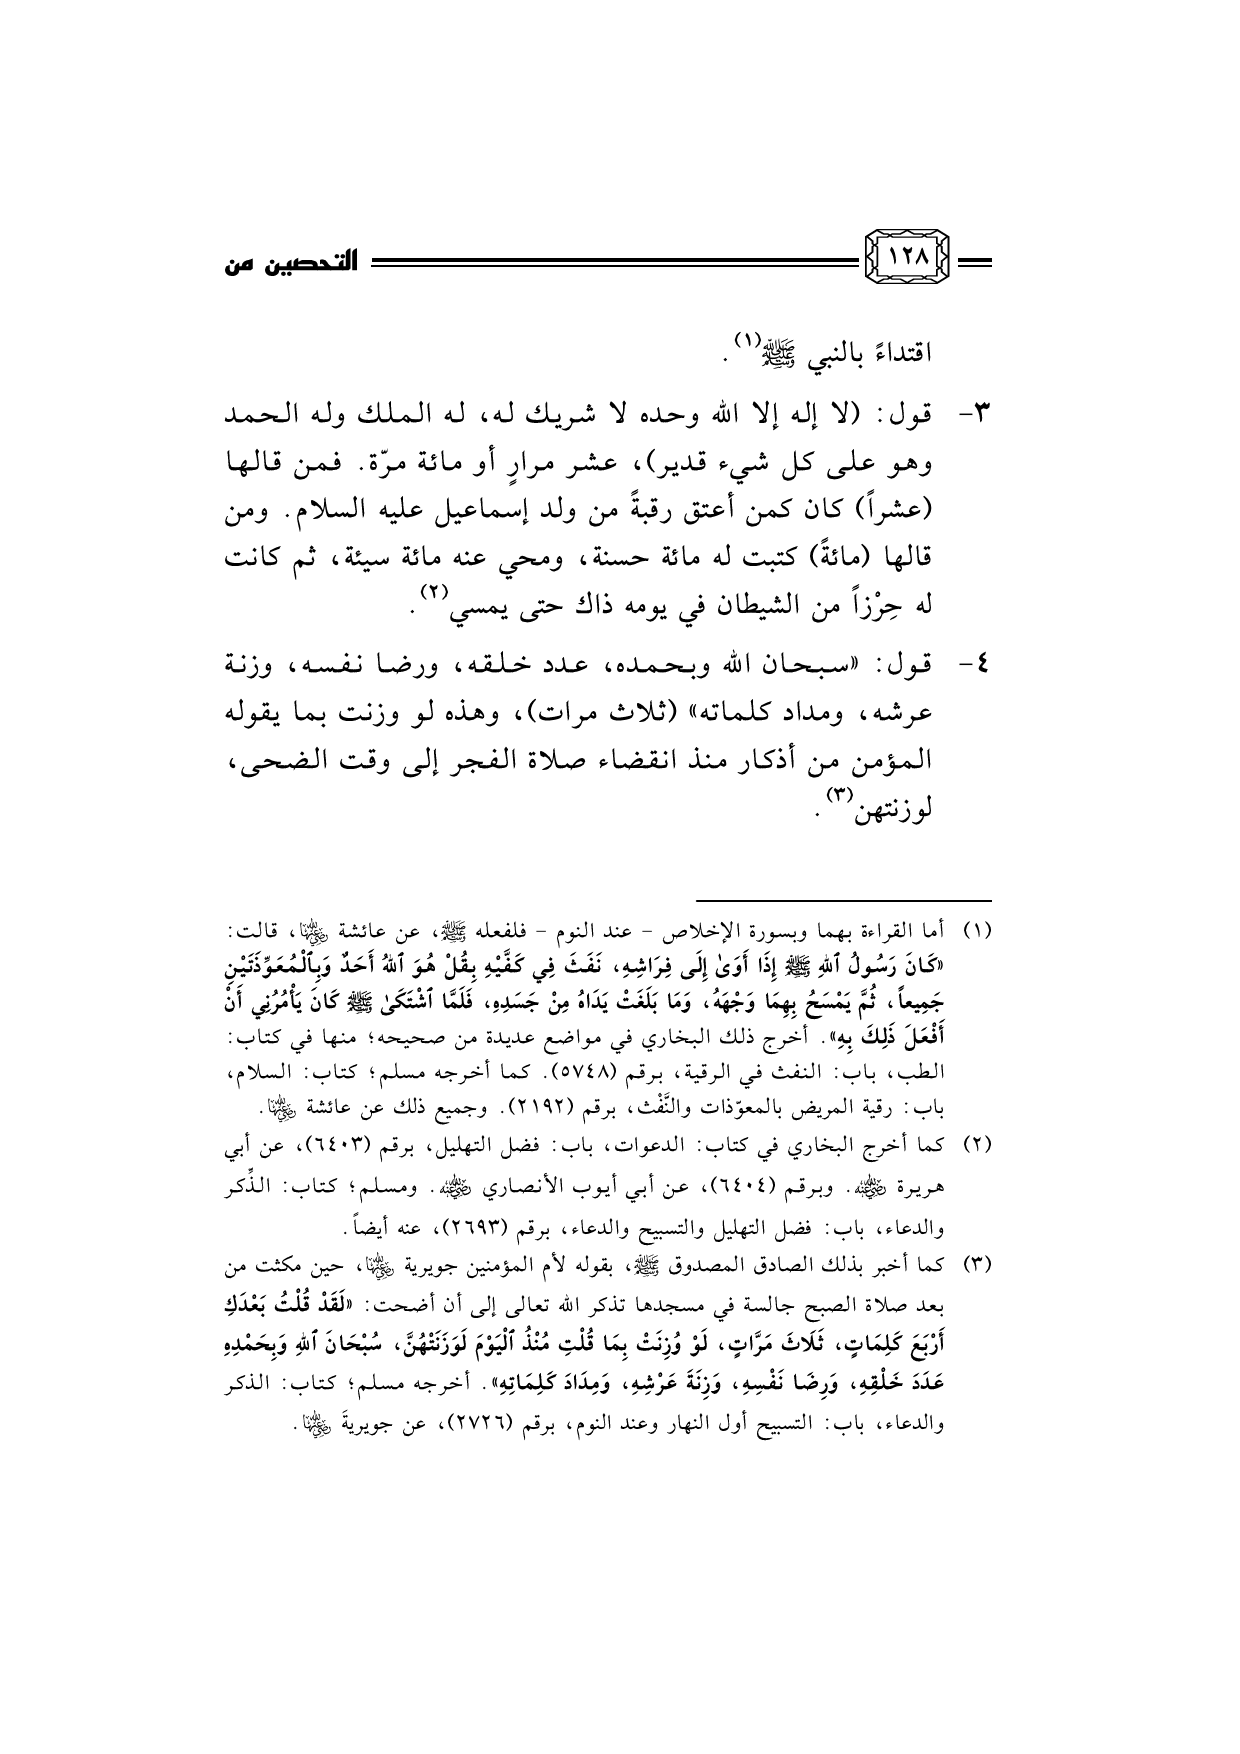 ١٢٨ التحصين من
اقتداءً بالنبي ﷺ(١).
٣- قول: (لا إله إلا الله وحده لا شريك له، له الملك وله الحمد
وهو على كل شيء قدير)، عشر مرارٍ أو مائة مرّة. فمن قالها
(عشراً) كان كمن أعتق رقبةً من ولد إسماعيل عليه السلام. ومن
قالها (مائةً) كتبت له مائة حسنة، ومحي عنه مائة سيئة، ثم كانت
له حِرْزاً من الشيطان في يومه ذاك حتى يمسي(٢).
٤- قول: «سبحان الله وبحمده، عدد خلقه، ورضا نفسه، وزنة
عرشه، ومداد كلماته» (ثلاث مرات)، وهذه لو وزنت بما يقوله
المؤمن من أذكار منذ انقضاء صلاة الفجر إلى وقت الضحى،
لوزنتهن(٣).
(١) أما القراءة بهما وبسورة الإخلاص - عند النوم - فلفعله ﷺ، عن عائشة رضي الله عنها، قالت:
«كَانَ رَسُولُ ٱللهِ ﷺ إِذَا أَوَىٰ إِلَى فِرَاشِهِ، نَفَثَ فِي كَفَّيْهِ بِقُلْ هُوَ ٱللهُ أَحَدٌ وَبِٱلْمُعَوِّذَتَيْنِ
جَمِيعاً، ثُمَّ يَمْسَحُ بِهِمَا وَجْهَهُ، وَمَا بَلَغَتْ يَدَاهُ مِنْ جَسَدِهِ، فَلَمَّا ٱشْتَكَىٰ ﷺ كَانَ يَأْمُرُنِي أَنْ
أَفْعَلَ ذَلِكَ بِهِ». أخرج ذلك البخاري في مواضع عديدة من صحيحه؛ منها في كتاب:
الطب، باب: النفث في الرقية، برقم (٥٧٤٨). كما أخرجه مسلم؛ كتاب: السلام،
باب: رقية المريض بالمعوّذات والنَّفْث، برقم (٢١٩٢). وجميع ذلك عن عائشة رضي الله عنها.
(٢) كما أخرج البخاري في كتاب: الدعوات، باب: فضل التهليل، برقم (٦٤٠٣)، عن أبي
هريرة رضي الله عنه. وبرقم (٦٤٠٤)، عن أبي أيوب الأنصاري رضي الله عنه. ومسلم؛ كتاب: الذِّكر
والدعاء، باب: فضل التهليل والتسبيح والدعاء، برقم (٢٦٩٣)، عنه أيضاً.
(٣) كما أخبر بذلك الصادق المصدوق ﷺ، بقوله لأم المؤمنين جويرية رضي الله عنها، حين مكثت من
بعد صلاة الصبح جالسة في مسجدها تذكر الله تعالى إلى أن أضحت: «لَقَدْ قُلْتُ بَعْدَكِ
أَرْبَعَ كَلِمَاتٍ، ثَلَاثَ مَرَّاتٍ، لَوْ وُزِنَتْ بِمَا قُلْتِ مُنْذُ ٱلْيَوْمَ لَوَزَنَتْهُنَّ، سُبْحَانَ ٱللهِ وَبِحَمْدِهِ
عَدَدَ خَلْقِهِ، وَرِضَا نَفْسِهِ، وَزِنَةَ عَرْشِهِ، وَمِدَادَ كَلِمَاتِهِ». أخرجه مسلم؛ كتاب: الذكر
والدعاء، باب: التسبيح أول النهار وعند النوم، برقم (٢٧٢٦)، عن جويريةَ رضي الله عنها.